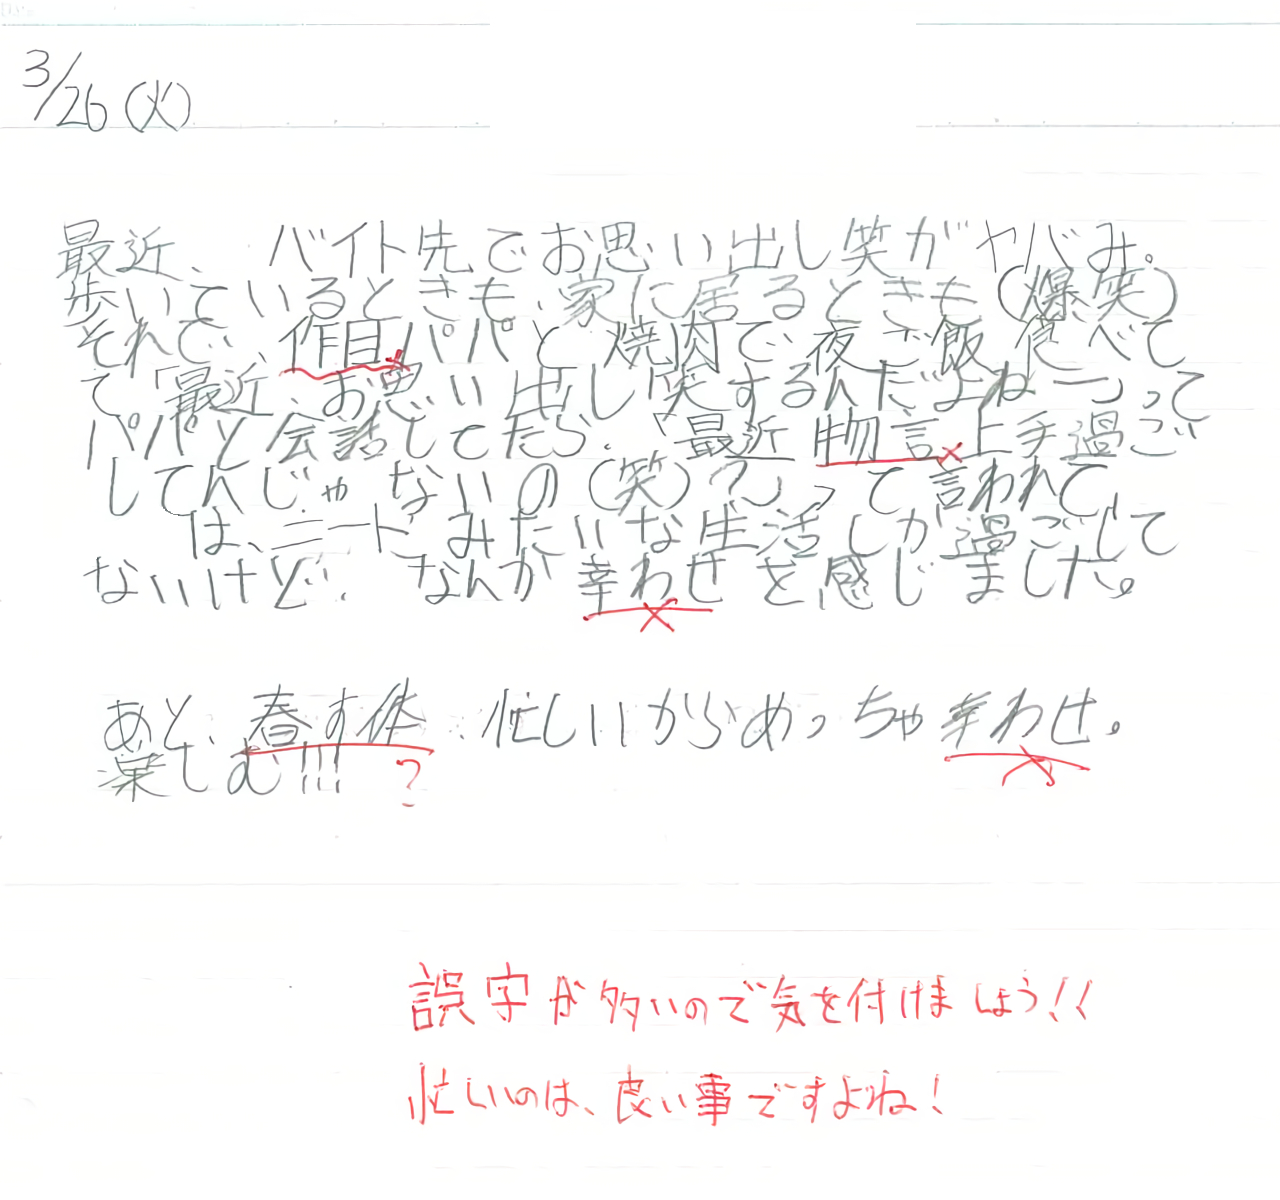 3/26(火)
最近、バイト先でお思い出し笑がヤバみ。
歩いているときも、家に居るときも(爆笑)
それで、作目パパと焼肉で夜ご飯食べて
て「最近、お思い出し笑するんだよねー」って
パパと会話してたら、「最近物言上手過ご
してんじゃないの(笑)?」って言われて
は、ニートみたいな生活しか過ごして
ないけど、なんか幸わせを感じました。
あと、春す休、忙しいからめっちゃ幸わせ。
楽しむ!!!
?
誤字が多いので気を付けましょう!!
忙しいのは、良い事ですよね!